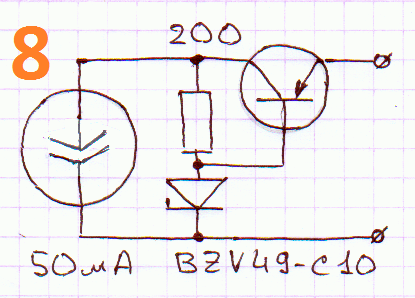 8
200
50мА BZV49-C10